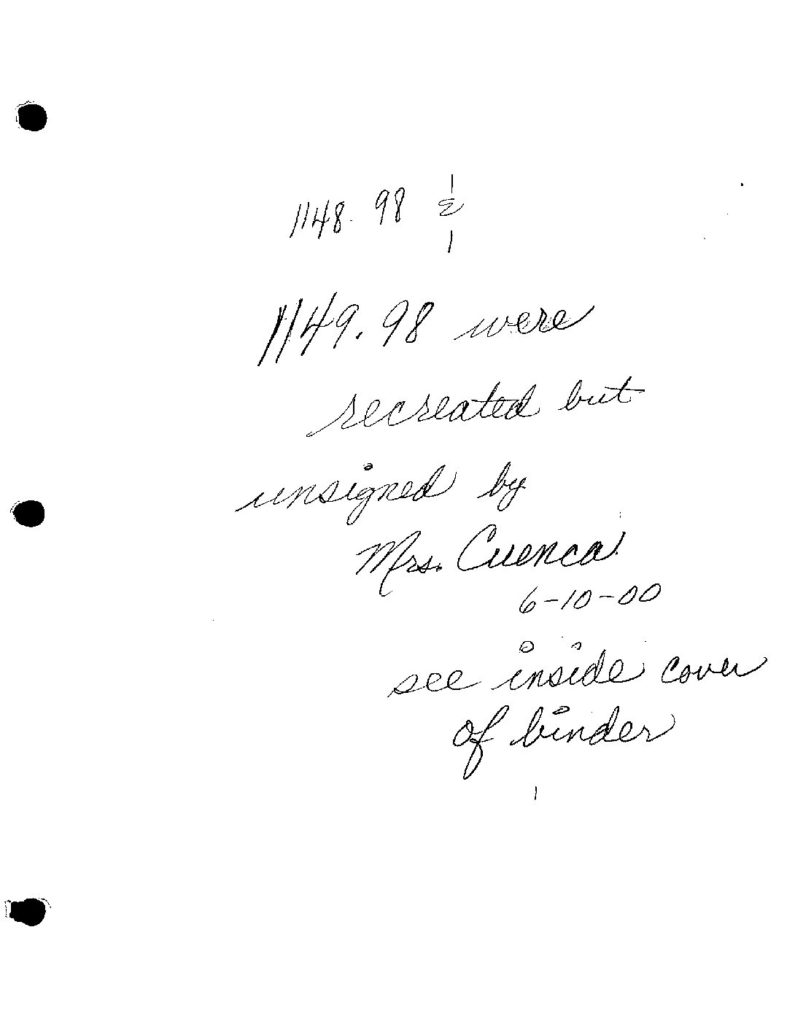 1148.98 &
1149.98 were
recreated but
unsigned by
Mrs. Cuenca
6-10-00
see inside cover
of binder